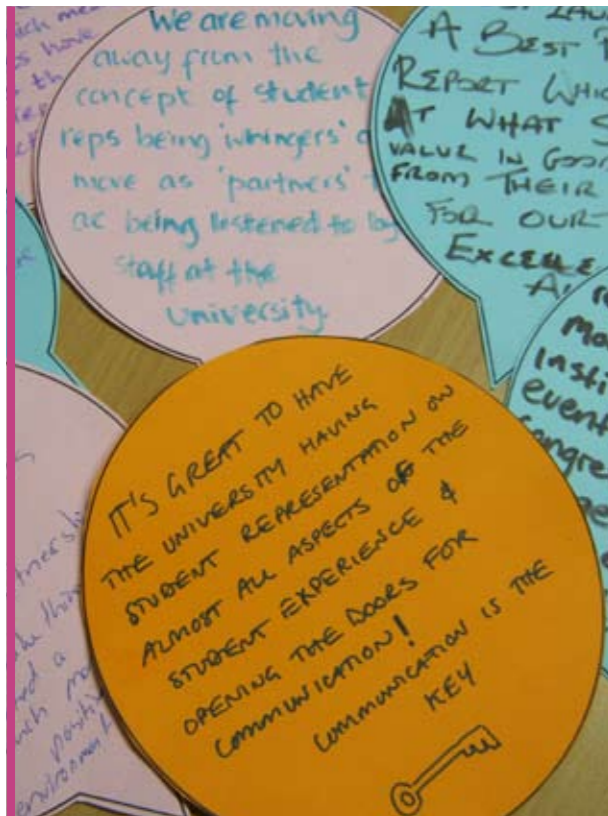 We are moving
away from the
concept of student
reps being 'whingers'
more as 'partners'
ac being listened to by
staff at the
university.
A BEST
REPORT WHIC
AT WHAT S
VALUE IN GOOD
FROM THEIR
FOR OUR
EXCELLE
A
Mo
Insti
event
congre
IT'S GREAT TO HAVE
THE UNIVERSITY HAVING
STUDENT REPRESENTATION ON
ALMOST ALL ASPECTS OF THE
STUDENT EXPERIENCE &
OPENING THE DOORS FOR
COMMUNICATION!
COMMUNICATION IS THE
KEY
tnership
thin
ed a
uch mo
positive
environment